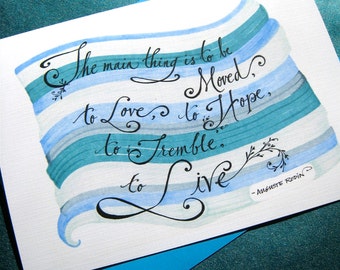 The main thing is to be
Moved,
to Love, to Hope,
to Tremble,
to Live
- AUGUSTE RODIN